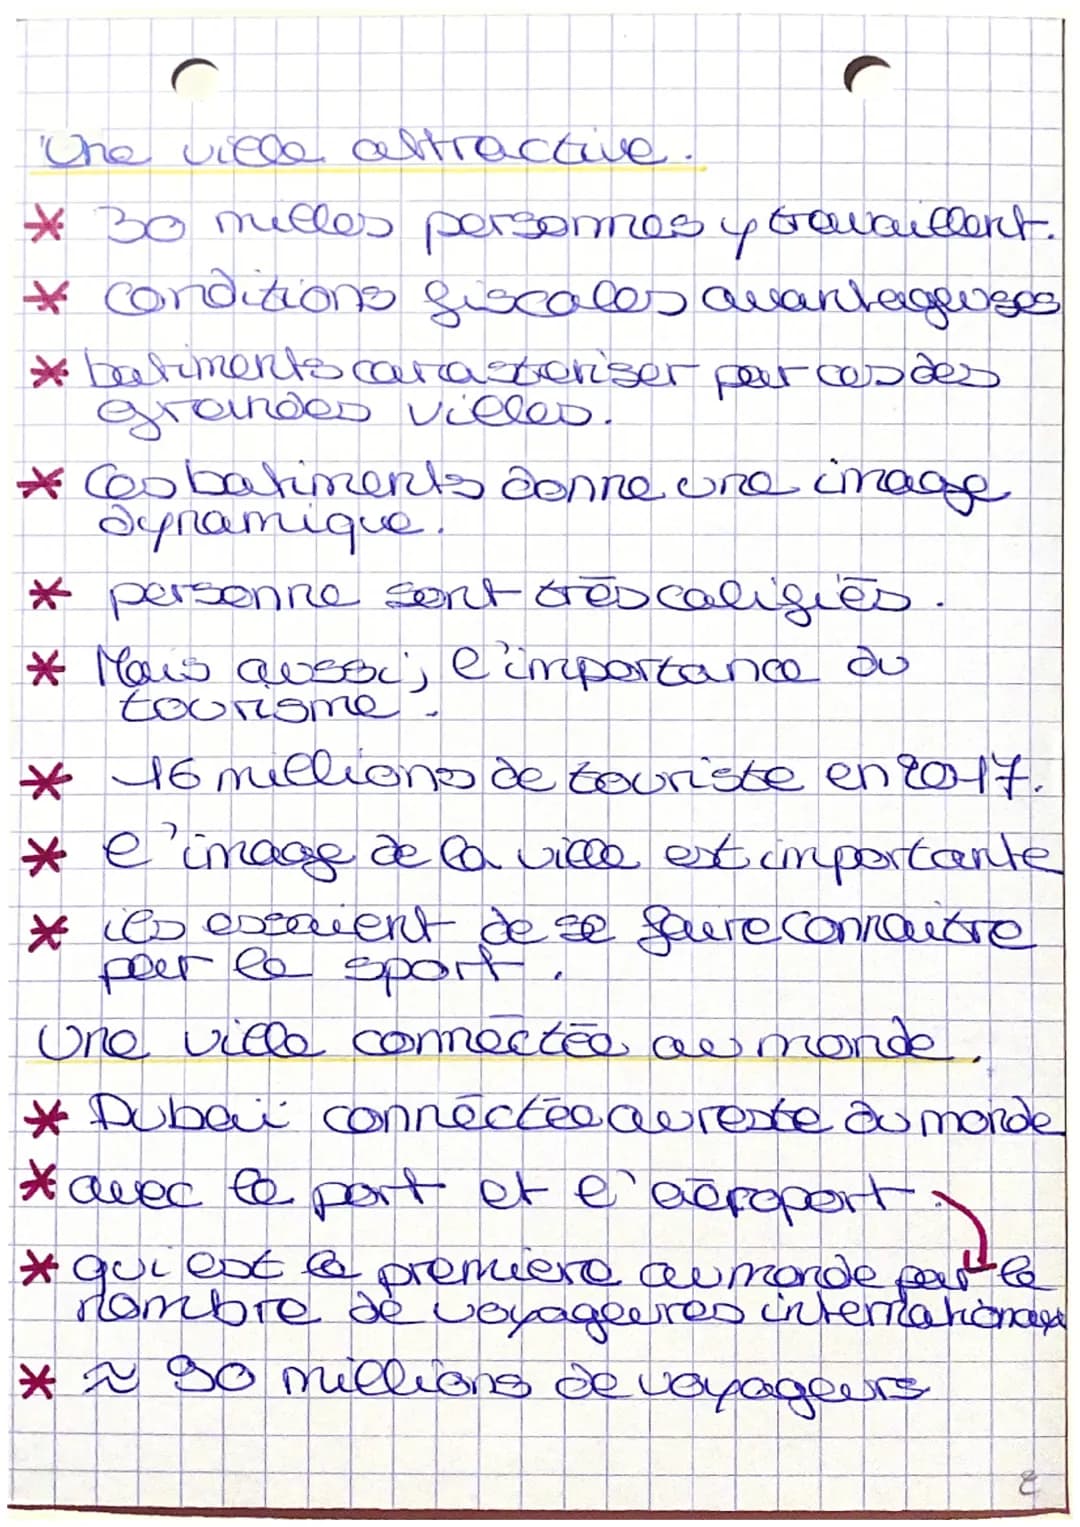 Une ville attractive.
* 30 milles personnes y travaillent.
* conditions fiscales avantageuses
* batiments carasteriser par ces des
grandes villes.
* Ces batiments donne une image
dynamique.
* personne sont très caligiés.
* Mais aussi, l'importance du
tourisme.
* 16 millions de touriste en 2017.
* l'image de la ville est importante
* ils essaient de se faire connaitre
par le sport.
Une ville connectée au monde.
* Dubaï connéctée au reste du monde
* avec le port et l'aéroport.
* qui est la premiere au monde par le
nombre de voyageures internationaux
* ≈ 90 millions de voyageurs
2